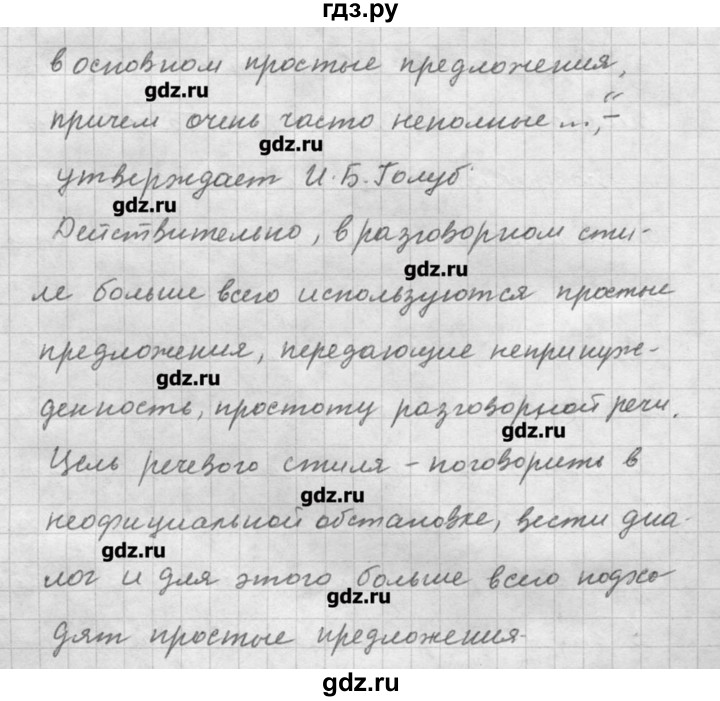 гдз.ру
в основном простые предложения,
gdz.ru
причем очень часто неполные ...," –
gdz.ru
утверждает И.Б. Голуб.
gdz.ru
Действительно, в разговорном сти-
gdz.ru
ле больше всего используются простые
предложения, передающие непринуж-
gdz.ru
денность, простоту разговорной речи.
gdz.ru
Цель речевого стиля – поговорить в
gdz.ru
неофициальной обстановке, вести диа-
gdz.ru
лог и для этого больше всего подхо
gdz.ru
дят простые предложения.
gdz.ru